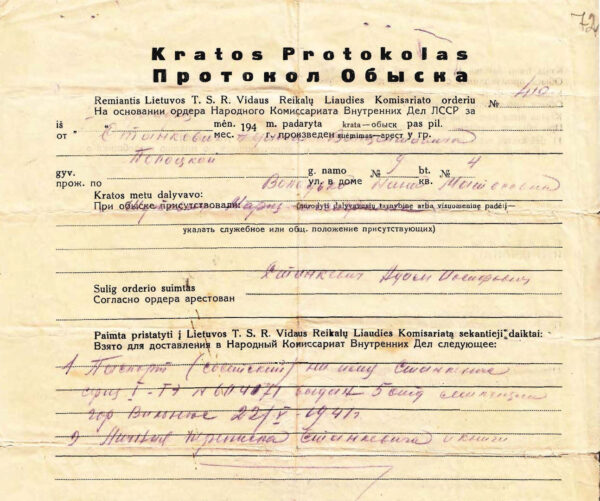 72
Kratos Protokolas
Протокол Обыска
Remiantis Lietuvos T. S. R. Vidaus Reikalų Liaudies Komisariato orderiu № 419
На основании ордера Народного Комиссариата Внутренних Дел ЛССР за
iš mėn. 194 m. padaryta krata—обыск pas pil.
от " мес. г. произведен suėmimas—арест у гр.
Станкевич
Полоцкой 9 4
gyv. g. namo № bt.
прож. по ул. в доме № кв.
Kratos metu dalyvavo:
При обыске присутствовали: (nurodyti dalyvavusių tarnybinę arba visuomeninę padėtį—
указать служебное или общ. положение присутствующих)
Станкевич Адам Иосифович
Sulig orderio suimtas
Согласно ордера арестован
Paimta pristatyti į Lietuvos T. S. R. Vidaus Reikalų Liaudies Komisariatą sekantieji daiktai:
Взято для доставления в Народный Комиссариат Внутренних Дел следующее:
1 Паспорт (советский) на имя Станкевич
I-ТЯ № 604071 выдан 5 отд милиции
гор Вильнюс 1941 г
2 Личная переписка Станкевича и книги